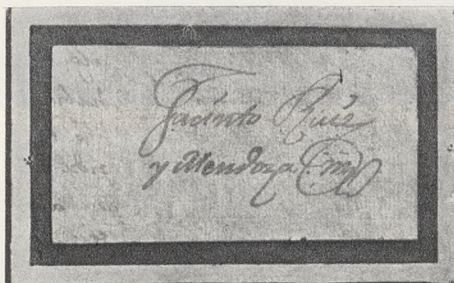 Jacinto Ruiz
y Mendoza